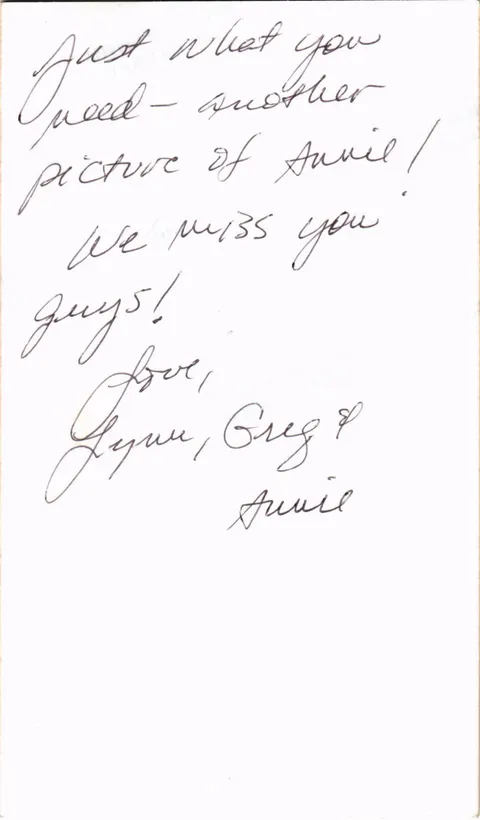 Just what you
need - another
picture of Annie!
We miss you
guys!
Love,
Lynn, Greg &
Annie